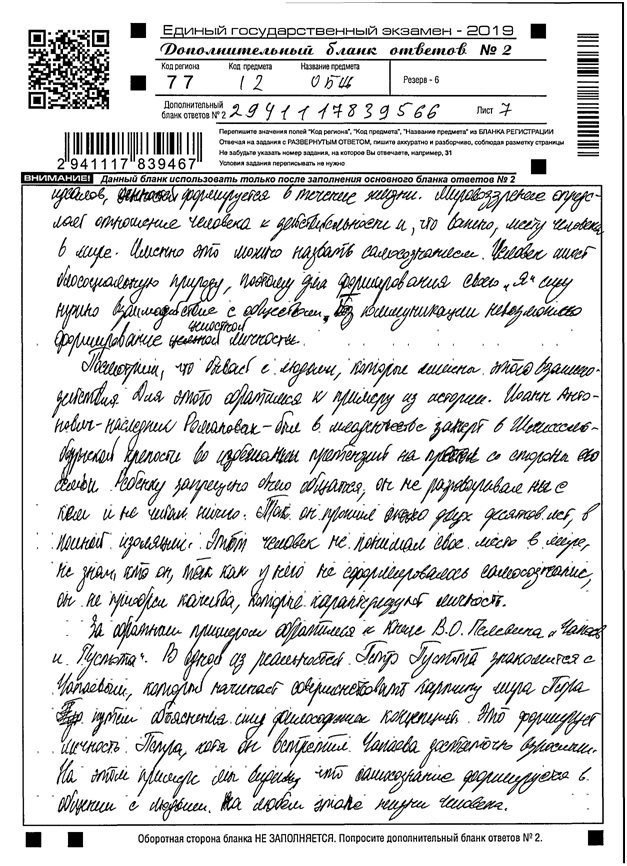 Единый государственный экзамен - 2019
Дополнительный бланк ответов № 2
Код региона Код предмета Название предмета
77 12 ОБЩ Резерв - 6
Дополнительный бланк ответов № 2 2941117839566 Лист 7
Перепишите значения полей "Код региона", "Код предмета", "Название предмета" из БЛАНКА РЕГИСТРАЦИИ
Отвечая на задания с РАЗВЕРНУТЫМ ОТВЕТОМ, пишите аккуратно и разборчиво, соблюдая разметку страницы
Не забудьте указать номер задания, на которое Вы отвечаете, например, 31
Условия задания переписывать не нужно
2 941117 839467
ВНИМАНИЕ! Данный бланк использовать только после заполнения основного бланка ответов № 2
идеалов, формируется в течение жизни. Мировоззрение опреде-
ляет отношение человека к действительности и, что важно, месту человека
в мире. Именно это можно назвать самосознанием. Человек имеет
биосоциальную природу, поэтому для формирования своего „Я" ему
нужно взаимодействие с обществом, без коммуникации невозможно
формирование целостной личности.
Посмотрим, что бывает с людьми, которые лишены этого взаимо-
действия. Для этого обратимся к примеру из истории. Иоанн Анто-
нович - наследник Романовых - был в младенчестве заперт в Шлиссель-
бургской крепости во избежании претензий на престол со стороны его
семьи. Ребенку запрещено было общаться, он не разговаривал ни с
кем и не читал ничего. Так он прожил около двух десятков лет, в
полной изоляции. Этот человек не понимал свое место в мире,
не знал, кто он, так как у него не сформировалось самосознание,
он не приобрел качества, которые характеризуют личность.
За обратным примером обратимся к книге В.О. Пелевина „Чапаев
и Пустота". В одной из реальностей Петр Пустота знакомится с
Чапаевым, который начинает совершенствовать картину мира Петра
путем объяснения ему философских концепций. Это формирует
личность Петра, хотя он встретил Чапаева достаточно взрослым.
На этом примере мы видим, что самосознание формируется в
общении с людьми на любом этапе жизни человека.
Оборотная сторона бланка НЕ ЗАПОЛНЯЕТСЯ. Попросите дополнительный бланк ответов № 2.